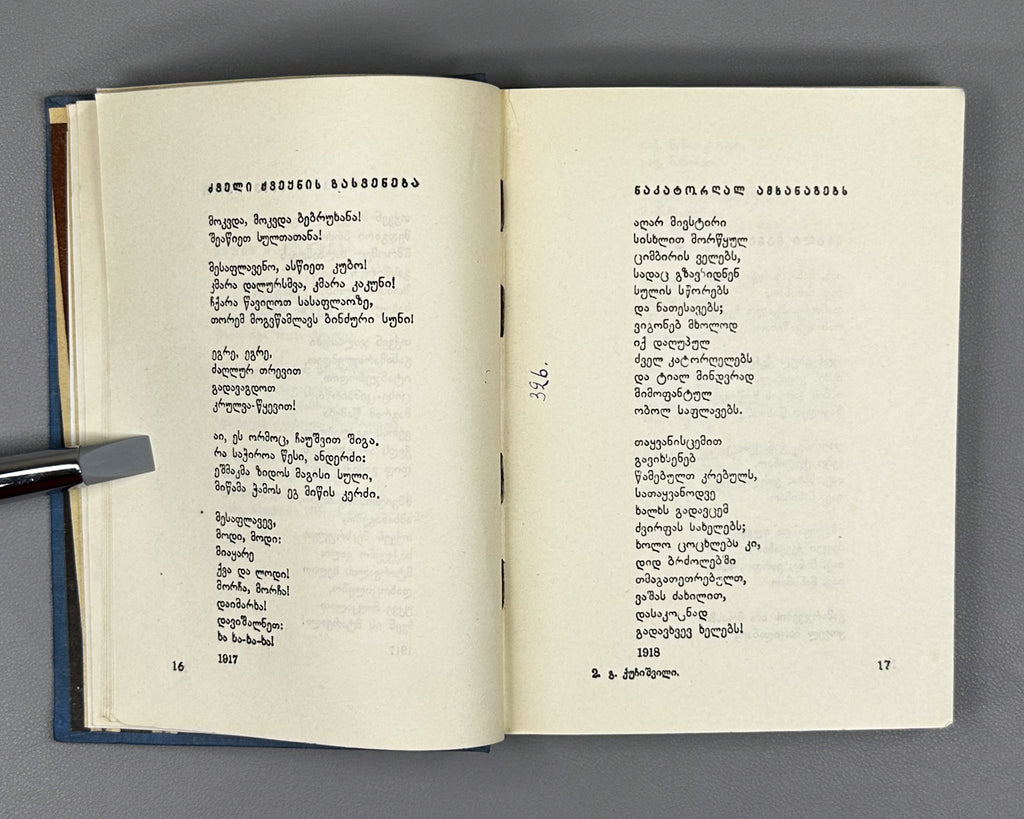 ძველი ქვეყნის გასვენება
მოკვდა, მოკვდა ბებრუხანა!
შეაწიეთ სულთათანა!
მესაფლავენო, ასწიეთ კუბო!
კმარა დალურსმვა, კმარა კაკუნი!
ჩქარა წავიღოთ სასაფლაოზე,
თორემ მოგვწამლავს ბინძური სუნი!
ეგრე, ეგრე,
ძაღლურ თრევით
გადავაგდოთ
კრულვა-წყევით!
აი, ეს ორმოც, ჩაუშვით შიგა.
რა საჭიროა წესი, ანდერძი:
ეშმაკმა ზიდოს მაგისი სული,
მიწამა ჭამოს ეგ მიწის კერძი.
მესაფლავევ,
მოდი, მოდი:
მიაყარე
ქვა და ლოდი!
მორჩა, მორჩა!
დაიმარხა!
დავიშალნეთ:
ხა ხა-ხა-ხა!
1917
16
ნაკატორღალ ამხანაგებს
აღარ მივსტირი
სისხლით მორწყულ
ციმბირის ველებს,
სადაც გზავნიდნენ
სულის სწორებს
და ნათესავებს;
ვიგონებ მხოლოდ
იქ დაღუპულ
ძველ კატორღელებს
და ტიალ მინდვრად
მიმოფანტულ
ობოლ საფლავებს.
თაყვანისცემით
გავიხსენებ
წამებულთ კრებულს,
სათაყვანოდვე
ხალხს გადავცემ
ძვირფას სახელებს;
ხოლო ცოცხლებს კი,
დიდ ბრძოლებში
თმაგათეთრებულთ,
ვაშას ძახილით,
დასაკოცნად
გადავხვევ ხელებს!
1918
2. გ. ქუჩიშვილი.
17
326.